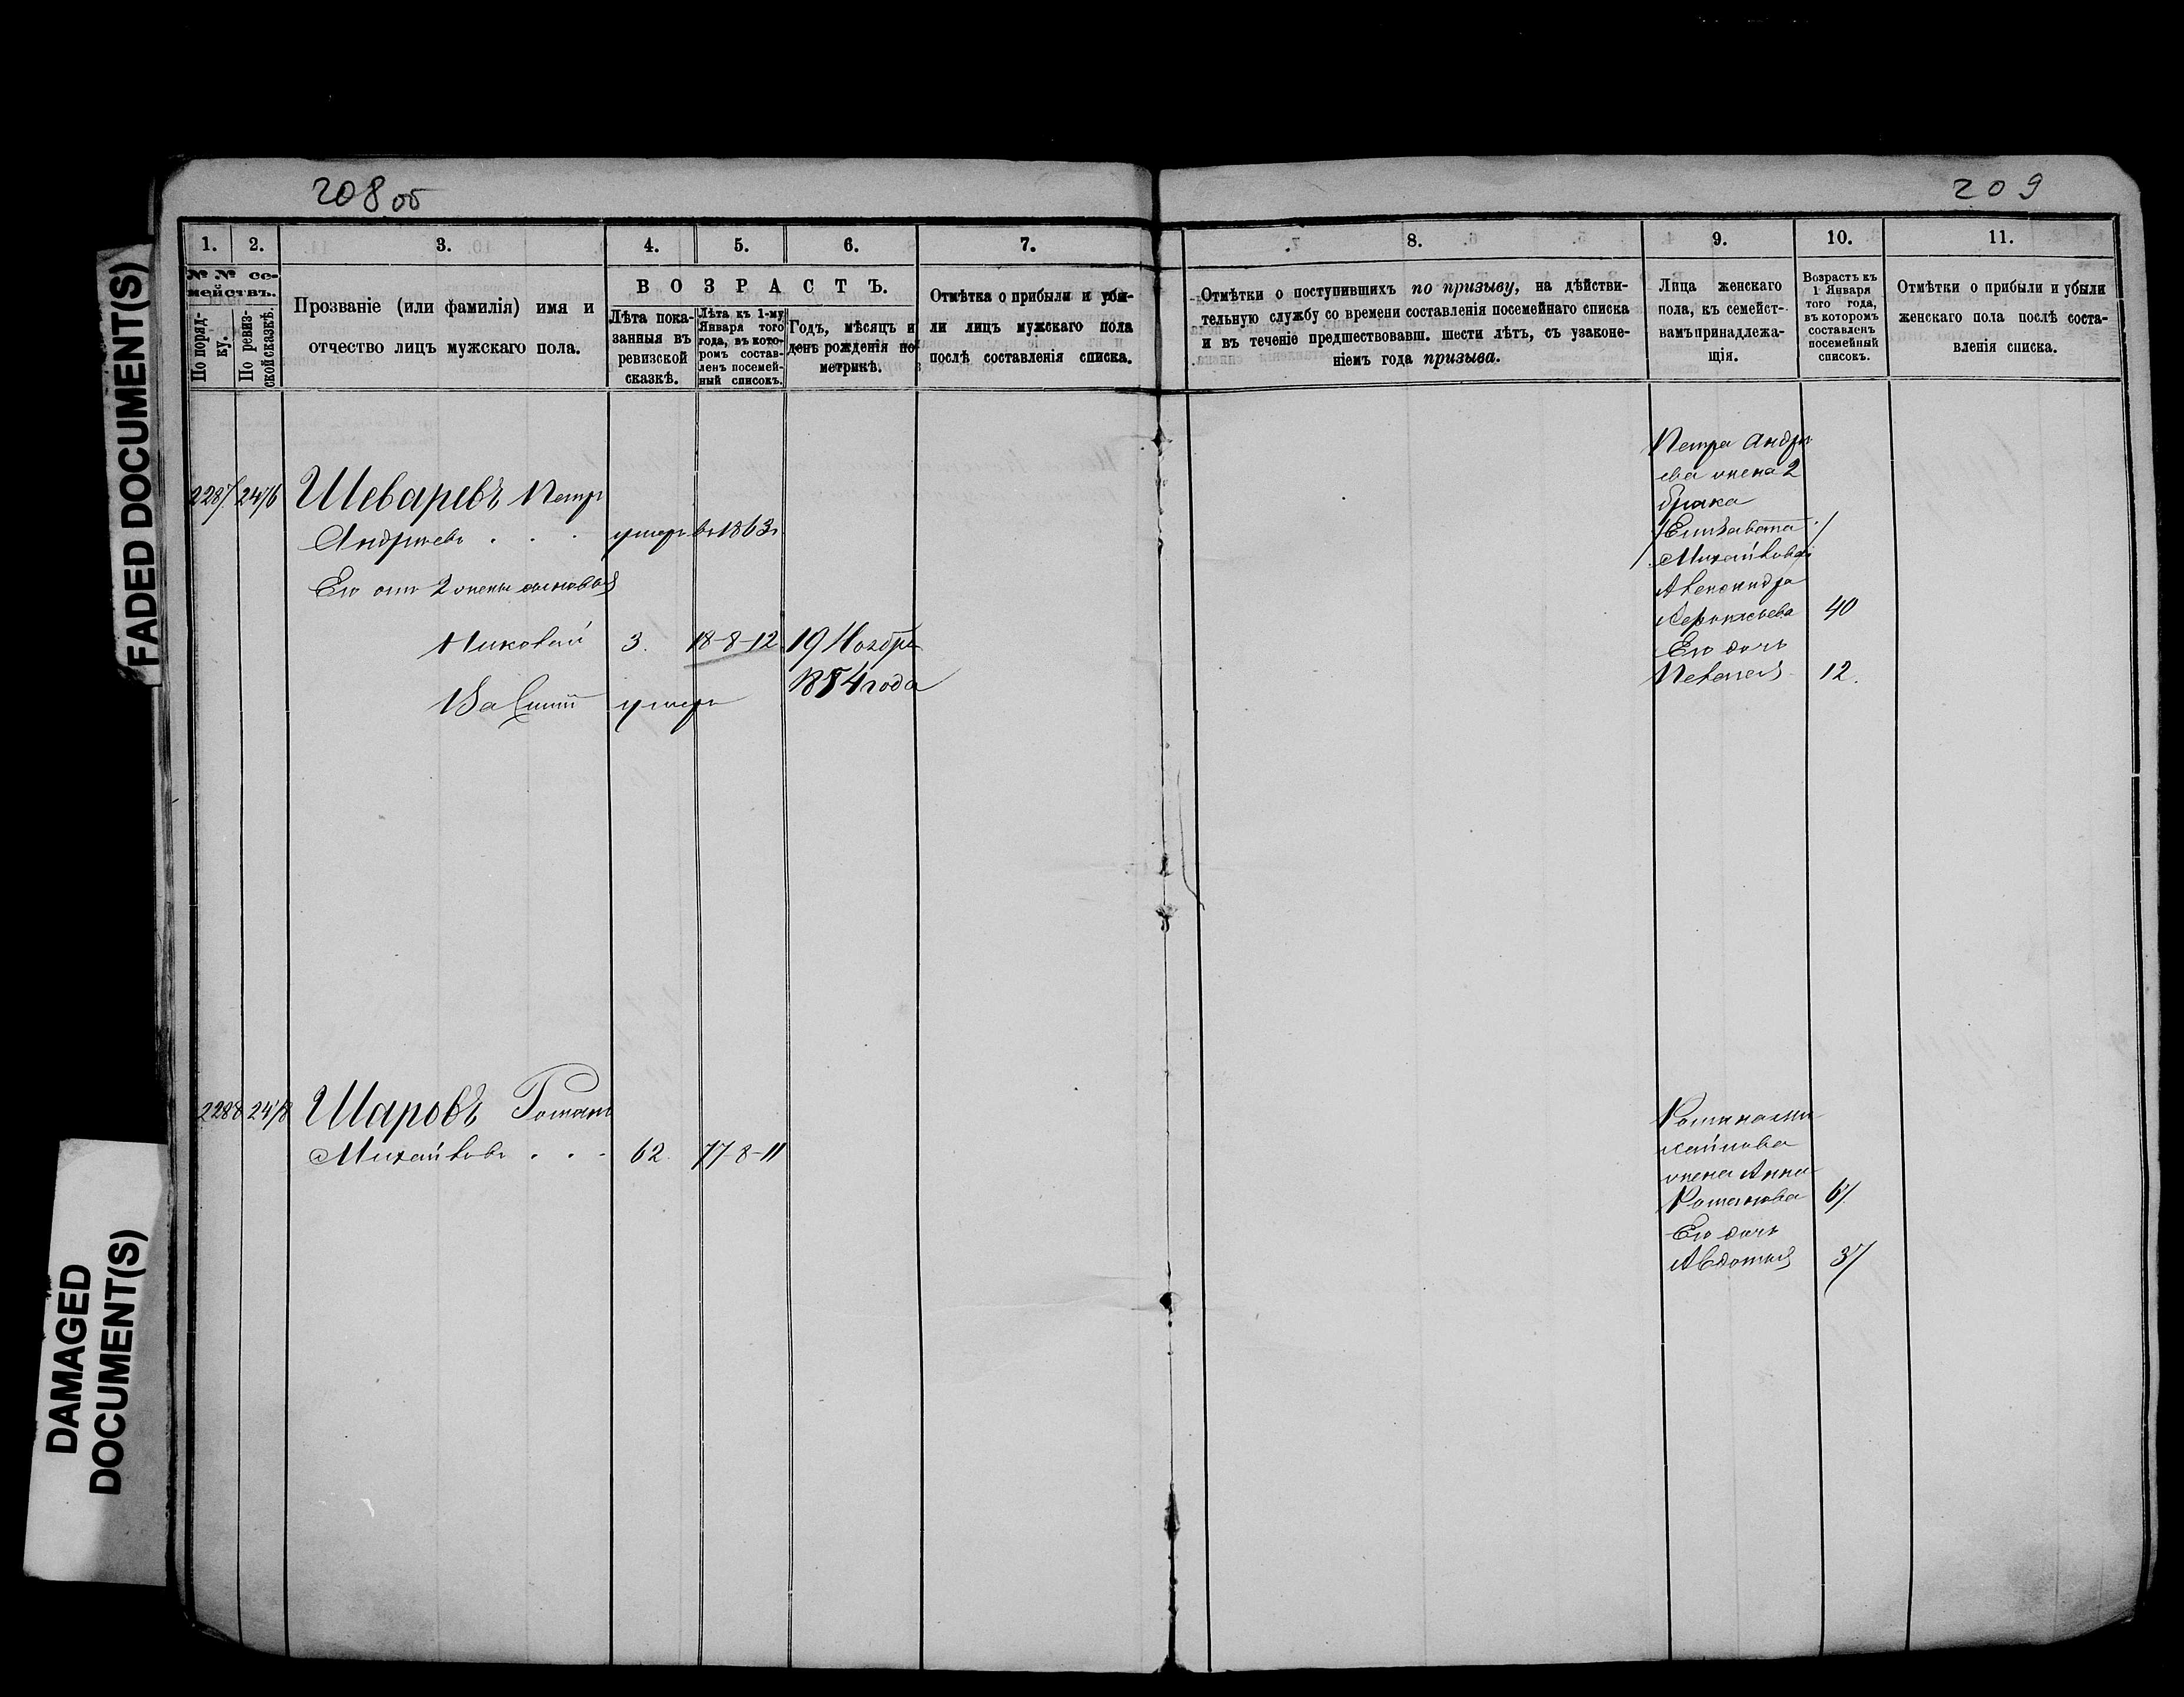 208 об
209
1.
2.
3.
4.
5.
6.
7.
8.
9.
10.
11.
№ № се-
мействъ.
По поряд-
ку.
По ревиз-
ской сказкѣ.
Прозваніе (или фамилія) имя и
отчество лицъ мужскаго пола.
ВОЗРАСТЪ.
Лѣта пока-
занныя въ
ревизской
сказкѣ.
Лѣта къ 1-му
Января того
года, въ кото-
ромъ состав-
ленъ посемей-
ный списокъ.
Годъ, мѣсяцъ и
день рожденія по
метрикѣ.
Отмѣтка о прибыли и убы-
ли лицъ мужскаго пола
послѣ составленія списка.
Отмѣтки о поступившихъ по призыву, на дѣйстви-
тельную службу со времени составленія посемейнаго списка
и въ теченіе предшествовавш. шести лѣтъ, съ узаконе-
ніемъ года призыва.
Лица женскаго
пола, къ семейст-
вамъ принадлежа-
щія.
Возрастъ къ
1 Января
того года,
въ которомъ
составленъ
посемейный
списокъ.
Отмѣтки о прибыли и убыли
женскаго пола послѣ соста-
вленія списка.
2287 2476 Шеваревъ Петръ
Андреевъ . . . умеръ въ 1863г
Его отъ 2 жены сыновья
Николай 3. 18-8-12 19 Ноября
1854 года
Василий умеръ
Петра Андре
ева жена 2
брака
Елизавета
Михайлова
Александра
40
Его дочь
Пелагея 12.
2288 2478 Шаровъ Романъ
Михайловъ . . . 62. 77-8-11
Романа Ми
хайлова
жена Анна
Романова 67.
Его дочь
Авдотья 37
FADED DOCUMENT(S)
DAMAGED
DOCUMENT(S)